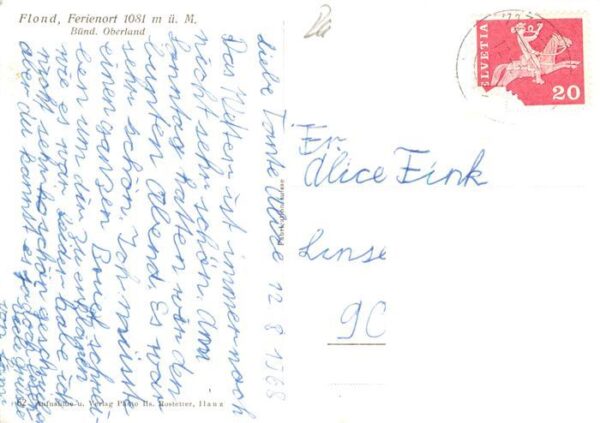 Flond, Ferienort 1081 m ü. M.
Bünd. Oberland
liebe Tante Alice 12 8 1968
Das Wetter ist immer noch
nicht sehr schön. Am
Sonntag hatten wir den
bunten Abend. Es war
sehr schön. Ich müsste
einen ganzen Brief schrei-
ben um dir zu erklären
wie es war. Leider habe ich
nicht sehr schön geschrieben
aber du kannst es ja
viele Grüsse
von
HELVETIA
20
Fr
Alice Fink
Linse
9C
62 Aufnahme u. Verlag Photo Hs. Rostetter, Ilanz